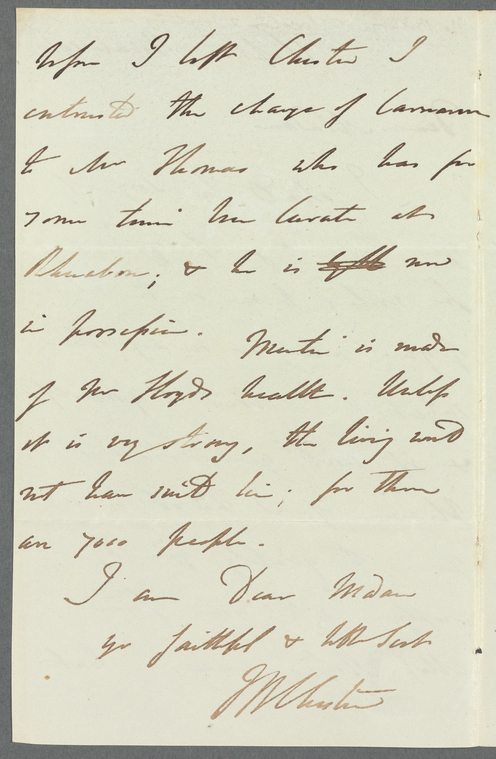 Before I left Chester I
entrusted the charge of
to Mr Thomas who has for
some time been Curate at
Rhuabon; & he is now
in possession. Mention is made
of Mr Lloyds health. Unless
it is very strong, the living wod
not have suited him; for there
are 7000 people.
I am Dear Madam
yr faithful & Servt
J B Chester